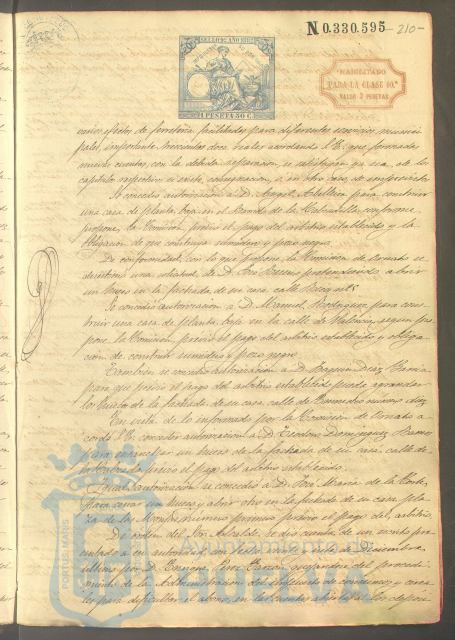 N 0.330.595
-210-
SELLO 10º AÑO 1882
1 PESETA 50 C.
HABILITADO
PARA LA CLASE 10.ª
VALOR 2 PESETAS
varios efectos de ferretería facilitados para diferentes servicios munici-
pales, importante trescientos doce reales acordando S.E. que formada
nueva cuenta, con la debida separación se satisfagan ya sea de los
capítulos respectivos si existe consignación, ó en otro caso, de imprevistos
Se concedió autorización á D. Angel para construir
una casa de planta baja en el Barrio de la conforme
propone la Comisión previo el pago del arbitrio establecido y la
obligación de que construya sumidero y pozo negro.
De conformidad con lo que propone la Comisión de Ornato se
desestimó una solicitud de D. José pretendiendo abrir
un hueco en la fachada de su casa calle
Se concedió autorización á D. Manuel Rodriguez para cons-
truir una casa de planta baja en la calle de Valencia segun pro-
pone la Comisión previo el pago del arbitrio establecido y obliga-
ción de construir sumidero y pozo negro.
También se concedió autorización á D. Joaquin Diaz García
para que previo el pago del arbitrio establecido pueda agrandar
los huecos de la fachada de su casa calle de numero diez
En vista de lo informado por la Comisión de Ornato a-
cordó S.E. conceder autorización á D. Teodoro Dominguez Ramos
para un hueco de la fachada de su casa calle de
previo el pago del arbitrio establecido.
Igual autorización se concedió á D. José María de la Corte,
para cerrar un hueco y abrir otro en la fachada de su casa pla-
za de las Monjas numero primero previo el pago del arbitrio.
De orden del Sor. Alcalde se dió cuenta de un escrito pre-
sentado á su autoridad con fecha de Diciembre
último por D. Perez quejandose del procedi-
miento de la Administracion del impuesto de consumos y
para dificultar el abono en las cuentas de los depósi
PORTUS MARIS
Ayuntamiento de
Huelva